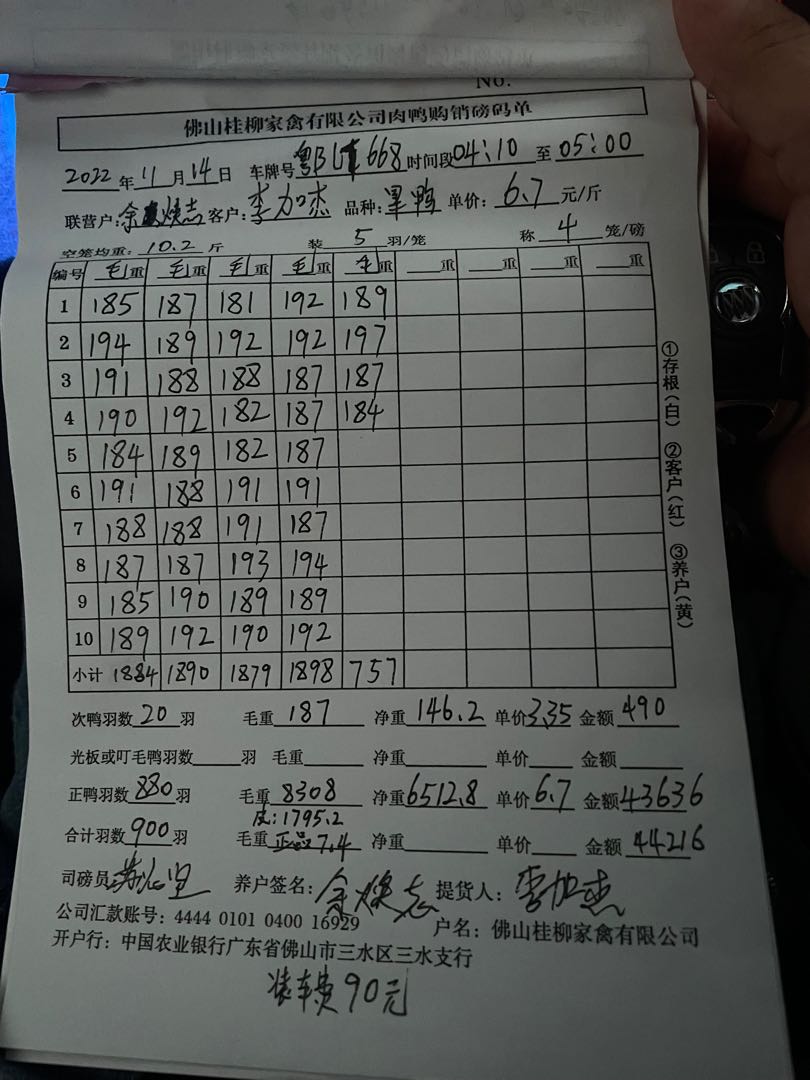 No.
佛山桂柳家禽有限公司肉鸭购销磅码单
2022 年 11 月 14 日 车牌号 668 时间段 04:10 至 05:00
联营户: 余焕志 客户: 李加杰 品种: 单价: 6.7 元/斤
空笼均重: 10.2 斤 装 5 羽/笼 称 4 笼/磅
编号 毛重 毛重 毛重 毛重 毛重 重 重 重 重
1 185 187 181 192 189
2 194 189 192 192 197
3 191 188 188 187 187
4 190 192 182 187 184
5 184 189 182 187
6 191 188 191 191
7 188 188 191 187
8 187 187 193 194
9 185 190 189 189
10 189 192 190 192
小计 1884 1890 1879 1898 757
①存根(白) ②客户(红) ③养户(黄)
次鸭羽数 20 羽 毛重 187 净重 146.2 单价 3.35 金额 490
光板或叮毛鸭羽数 羽 毛重 净重 单价 金额
正鸭羽数 880 羽 毛重 8308 净重 6512.8 单价 6.7 金额 43636
皮: 1795.2
合计羽数 900 羽 毛重 正品 7.4 净重 单价 金额 44216
司磅员 养户签名: 余焕志 提货人: 李加杰
公司汇款账号: 4444 0101 0400 16929 户名: 佛山桂柳家禽有限公司
开户行: 中国农业银行广东省佛山市三水区三水支行
装车费90元